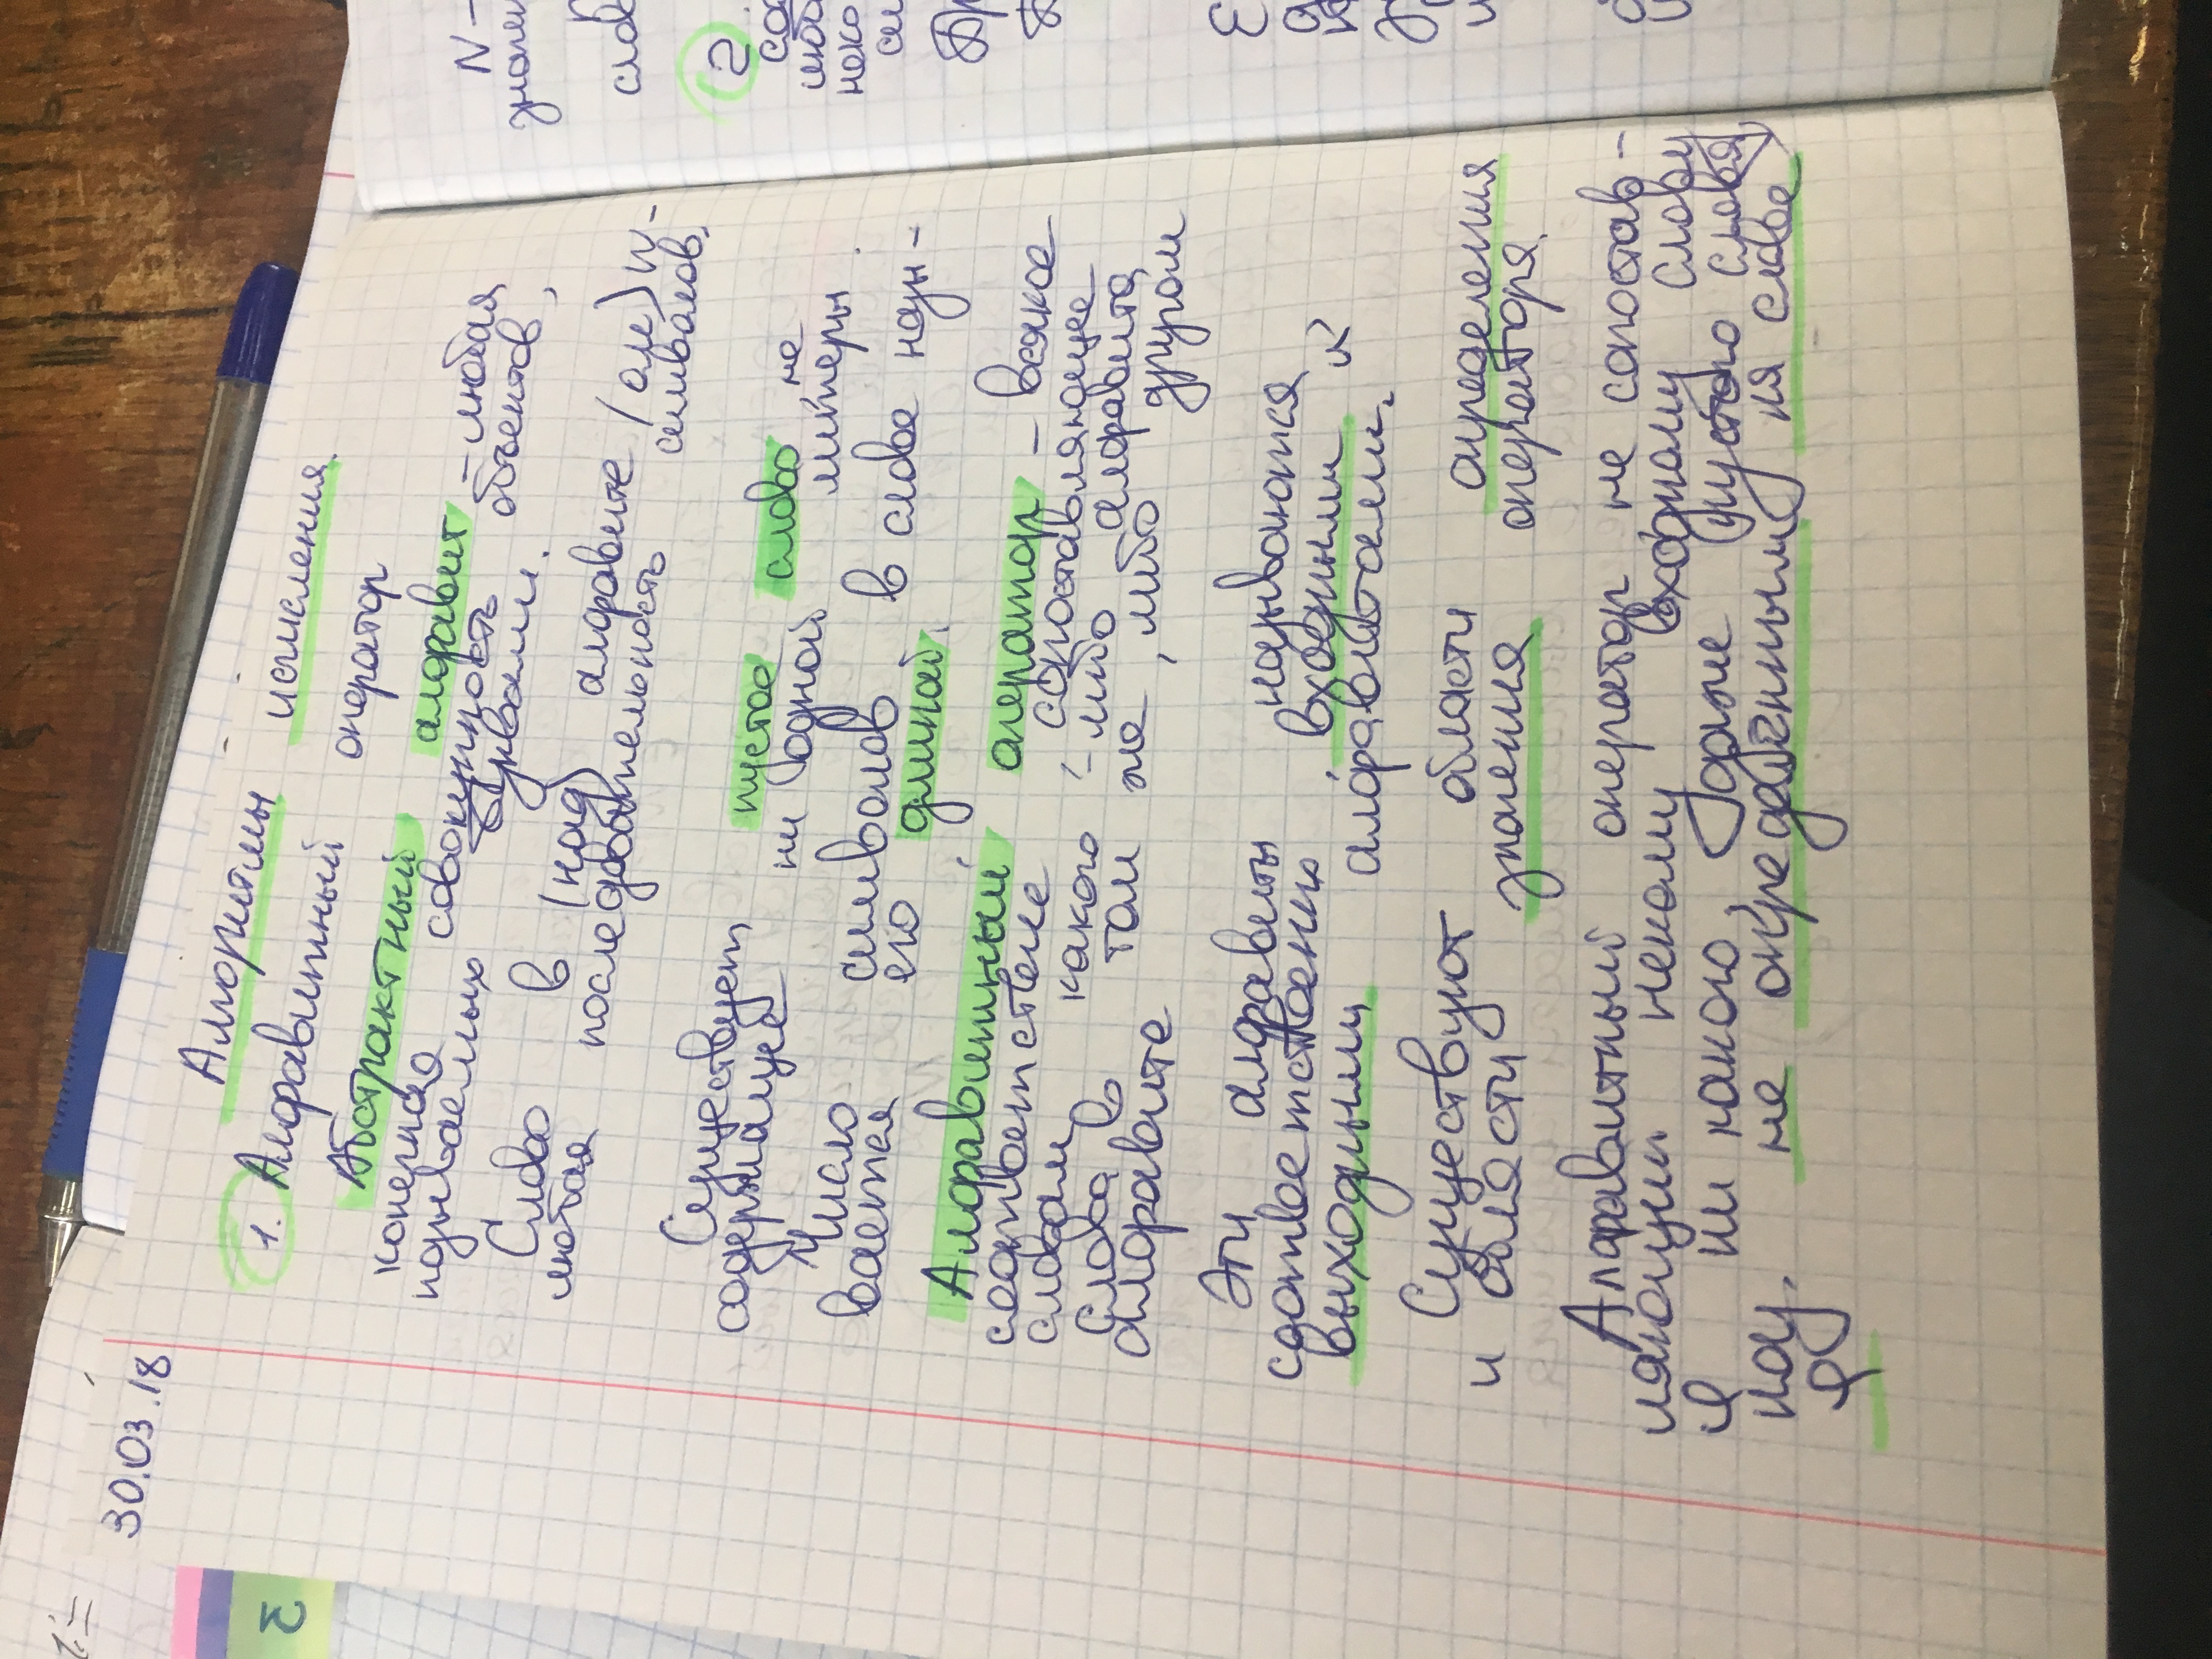 30.03.18
Алгоритмы исчисления.
1. Алфавитный оператор
Абстрактный алфавит – любая
конечная совокупность объектов,
называемых буквами.
Слово в (над) алфавите
любая последовательность символов.
Существует пустое слово, не
содержащее ни одной литеры.
Число символов в слове назы-
вается его длиной.
Алфавитный оператор – всякое
соответствие, сопоставляющее
словам какого-либо алфавита
слова в том же, либо другом
алфавите
Эти алфавиты называются
соответственно входными и
выходными алфавитами.
Существуют области определения
и области значения оператора.
Алфавитный оператор, не сопостав-
ляющий некому входному слову
φ ни какого, даже пустого слова,
наз. не определённым на слове
φ
N –
слов
2.
неко
3